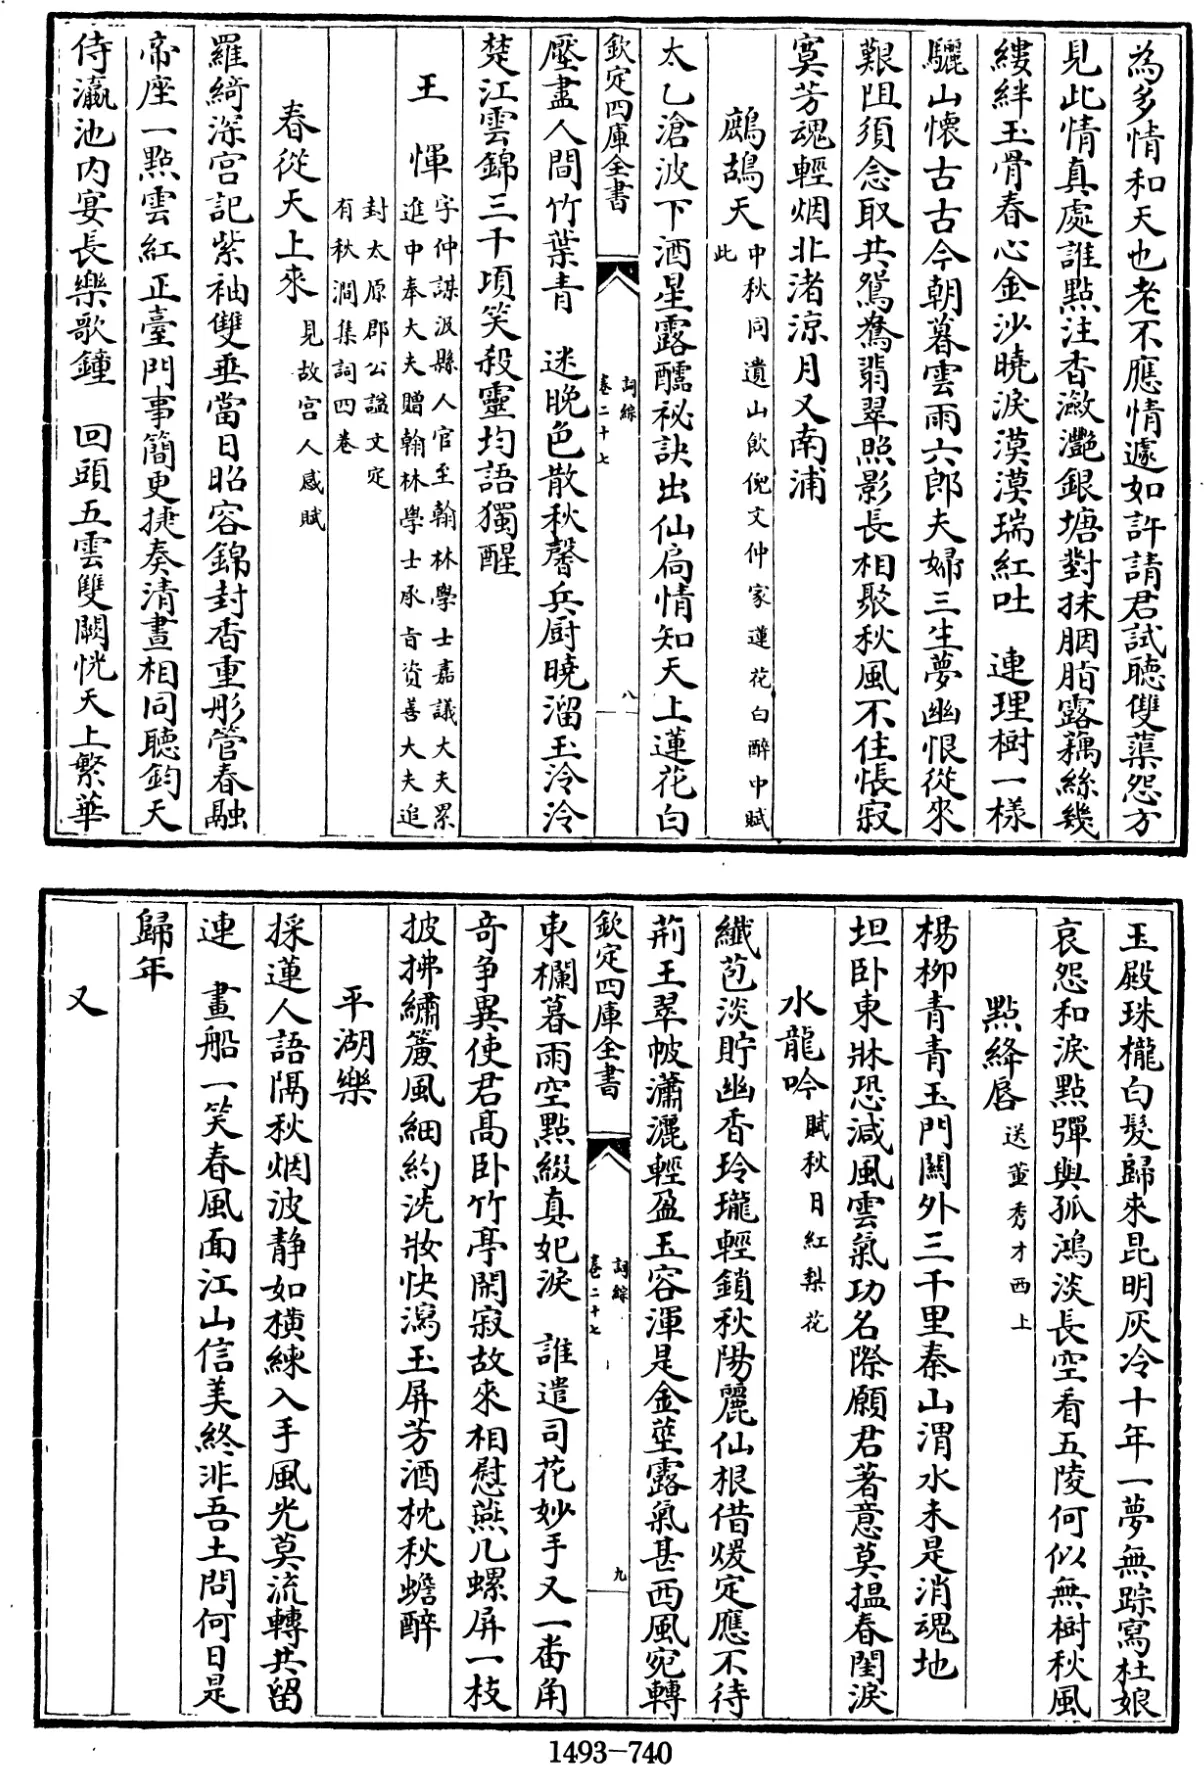 為多情和天也老不應情遽如許請君試聽雙蕖怨方
見此情真處誰點注香瀲灩銀塘對抹胭脂露藕絲幾
縷絆玉骨春心金沙曉淚漠漠瑞紅吐　連理樹一樣
驪山懷古古今朝暮雲雨六郎夫婦三生夢幽恨從來
艱阻須念取共鴛鴦翡翠照影長相聚秋風不住悵寂
寞芳魂輕烟非渚涼月又南浦
鷓鴣天中秋同遺山飲倪文仲家蓮花白醉中賦
此
太乙滄波下酒星露醹祕訣出仙扃情知天上蓮花白
欽定四庫全書
詞綜
卷二十七
八
壓盡人間竹葉青　迷晚色散秋馨兵厨曉溜玉泠泠
楚江雲錦三千頃笑殺靈均語獨醒
王惲字仲謀汲縣人官至翰林學士嘉議大夫累
進中奉大夫贈翰林學士承旨資善大夫追
封太原郡公諡文定
有秋澗集詞四卷
春從天上來見故宮人感賦
羅綺深宮記紫袖雙垂當日昭容錦封香重彤管春融
帝座一點雲紅正臺門事簡更捷奏清晝相同聽鈞天
侍瀛池内宴長樂歌鐘　回頭五雲雙闕恍天上繁華
玉殿珠櫳白髮歸來昆明灰冷十年一夢無踪寫杜娘
哀怨和淚點彈與孤鴻淡長空看五陵何似無樹秋風
點絳唇送董秀才西上
楊柳青青玉門關外三千里秦山渭水未是消魂地
坦卧東牀恐減風雲氣功名際願君著意莫揾春閨淚
水龍吟賦秋日紅梨花
纖苞淡貯幽香玲瓏輕鎖秋陽麗仙根借煖定應不待
荆王翠帔瀟灑輕盈玉容渾是金莖露氣甚西風宛轉
欽定四庫全書
詞綜
卷二十七
九
東欄暮雨空點綴真妃淚　誰遣司花妙手又一番角
奇争異使君高卧竹亭閑寂故來相慰燕几螺屏一枝
披拂繡簾風細約洗妝快瀉玉屏芳酒枕秋蟾醉
平湖樂
採蓮人語隔秋烟波静如横練入手風光莫流轉共留
連　畫船一笑春風面江山信美終非吾土問何日是
歸年
又
1493-740